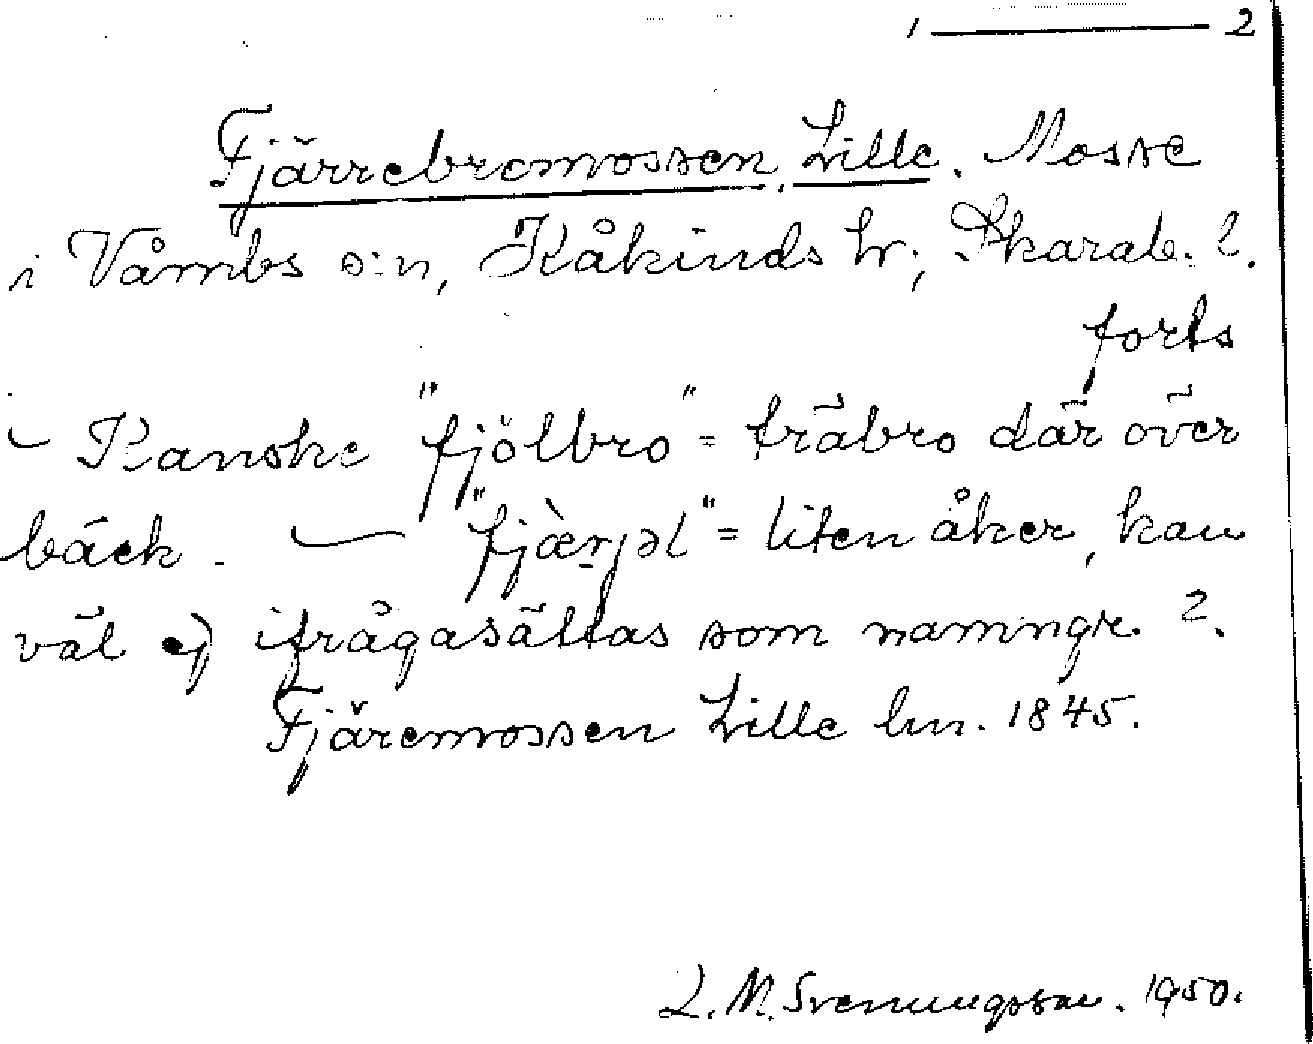 1 — 2
Fjärrebromossen, Lille. Mosse
i Våmbs s:n, Kåkinds hr; Skarab. l.
forts
– Kanske "fjölbro" = träbro där över
bäck. — "fjæ̀rjəl" = liten åker, kan
väl ej ifrågasättas som namngr. ?.
Fjäremossen Lille lm. 1845.
L. M. Svenungsson. 1950.